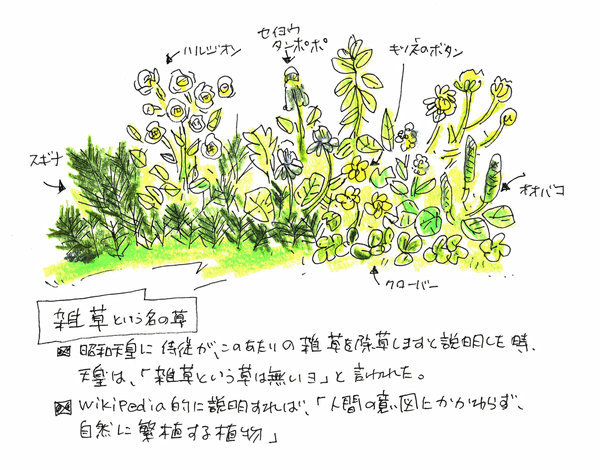 ハルジオン
セイヨウ
タンポポ
キツネのボタン
スギナ
オオバコ
クローバー
雑草という名の草
昭和天皇に侍従が、このあたりの雑草を除草しますと説明した時、
天皇は、「雑草という草は無いヨ」と言われた。
Wikipedia的に説明すれば、「人間の意図にかかわらず、
自然に繁殖する植物」